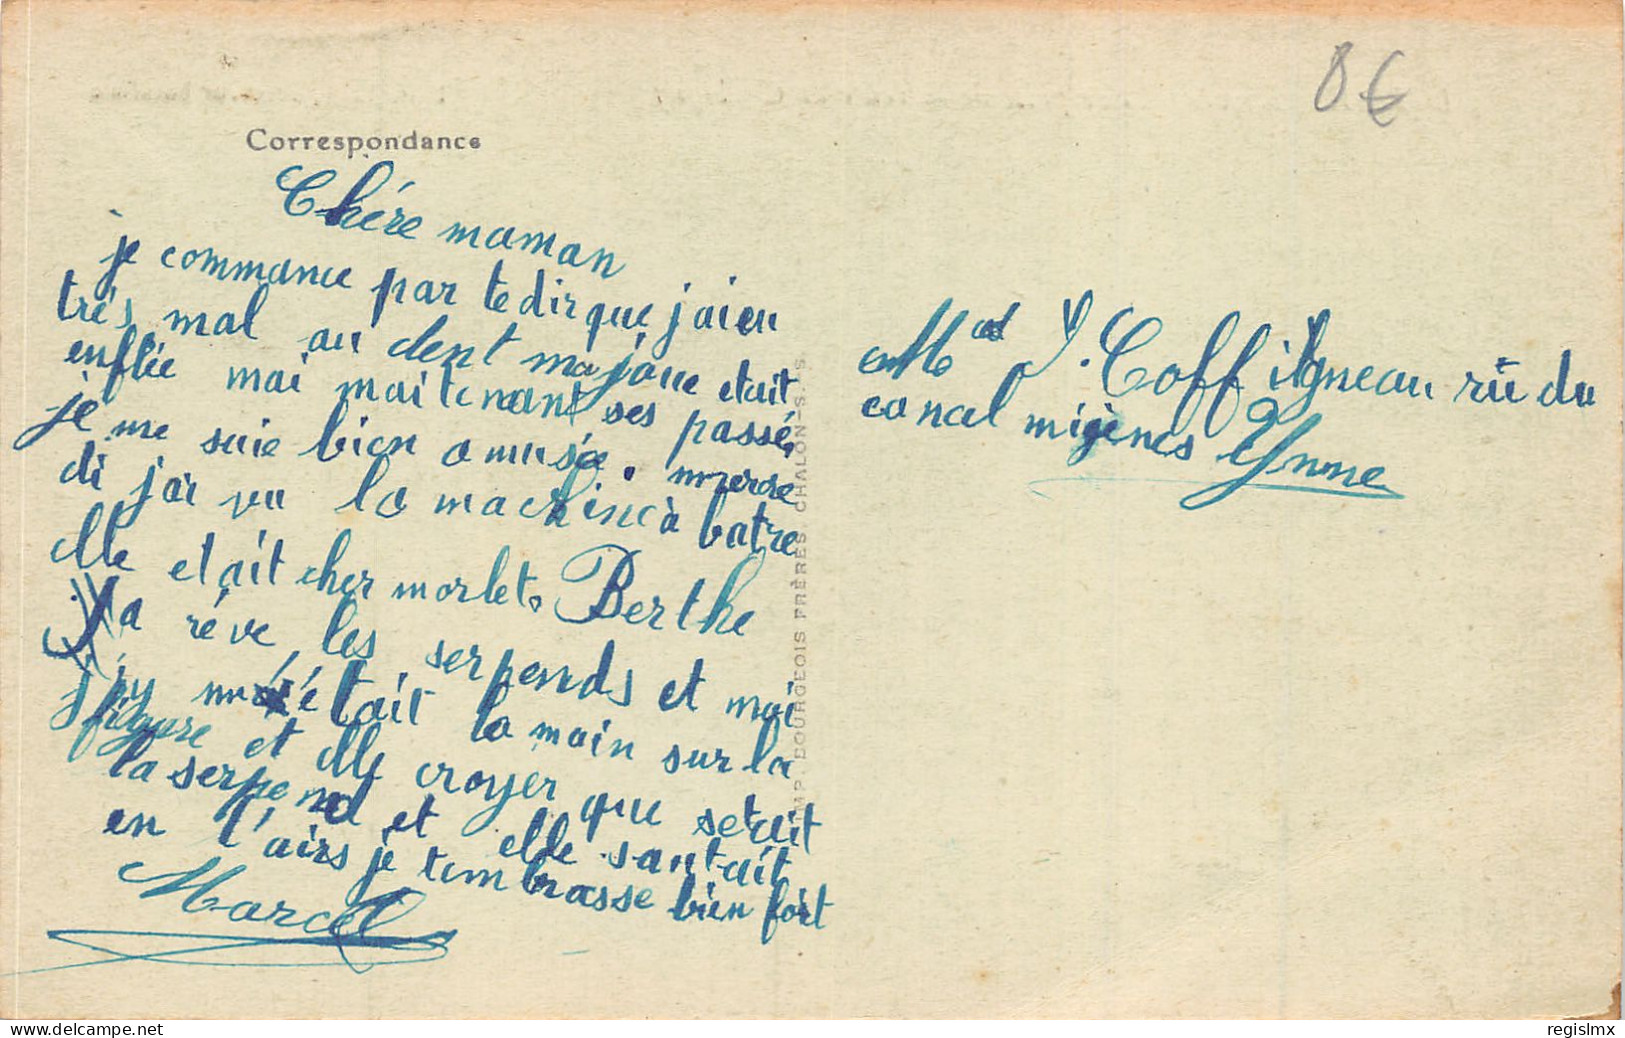 8€
Correspondance
Chére maman
je commance par te dir que j'ai eu
très mal au dent ma joue etait
enflée mai maitenant ses passé
je me suie bien amusée. mercre
di j'ai vu la machine à batre
elle etait cher morlet. Berthe
a réve les serpends et moi
j'ey métait la main sur la
figure et elle croyer que setait
la serpend et elle santait
en l'airs je tembrasse bien fort
Marcel
IMP. BOURGEOIS FRÈRES, CHALON-S-S.
Coffigneau rue du
canal migènes Yonne
delcampe.net
regislmx